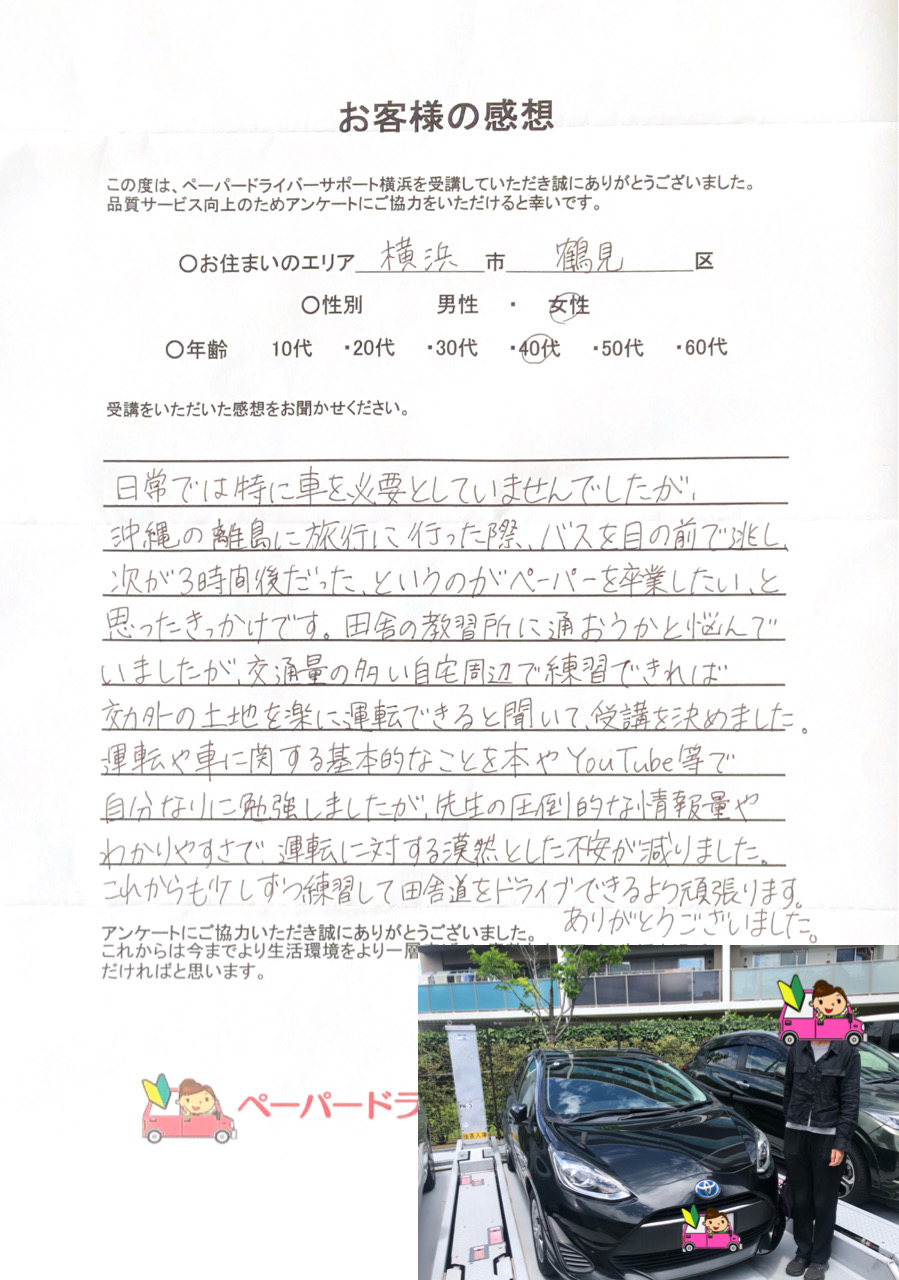 お客様の感想
この度は、ペーパードライバーサポート横浜を受講していただき誠にありがとうございました。
品質サービス向上のためアンケートにご協力をいただけると幸いです。
○お住まいのエリア 横浜 市 鶴見 区
○性別 男性 ・ 女性
○年齢 10代 ・20代 ・30代 ・40代 ・50代 ・60代
受講をいただいた感想をお聞かせください。
日常では特に車を必要としていませんでしたが、
沖縄の離島に旅行に行った際、バスを目の前で逃し、
次が3時間後だった、というのがペーパーを卒業したい、と
思ったきっかけです。田舎の教習所に通おうかと悩んで
いましたが、交通量の多い自宅周辺で練習できれば
郊外の土地を楽に運転できると聞いて、受講を決めました。
運転や車に関する基本的なことを本やYouTube等で
自分なりに勉強しましたが、先生の圧倒的な情報量や
わかりやすさで、運転に対する漠然とした不安が減りました。
これからも少しずつ練習して田舎道をドライブできるよう頑張ります。
ありがとうございました。
アンケートにご協力いただき誠にありがとうございました。
これからは今までより生活環境をより一層
だければと思います。
ペーパードラ